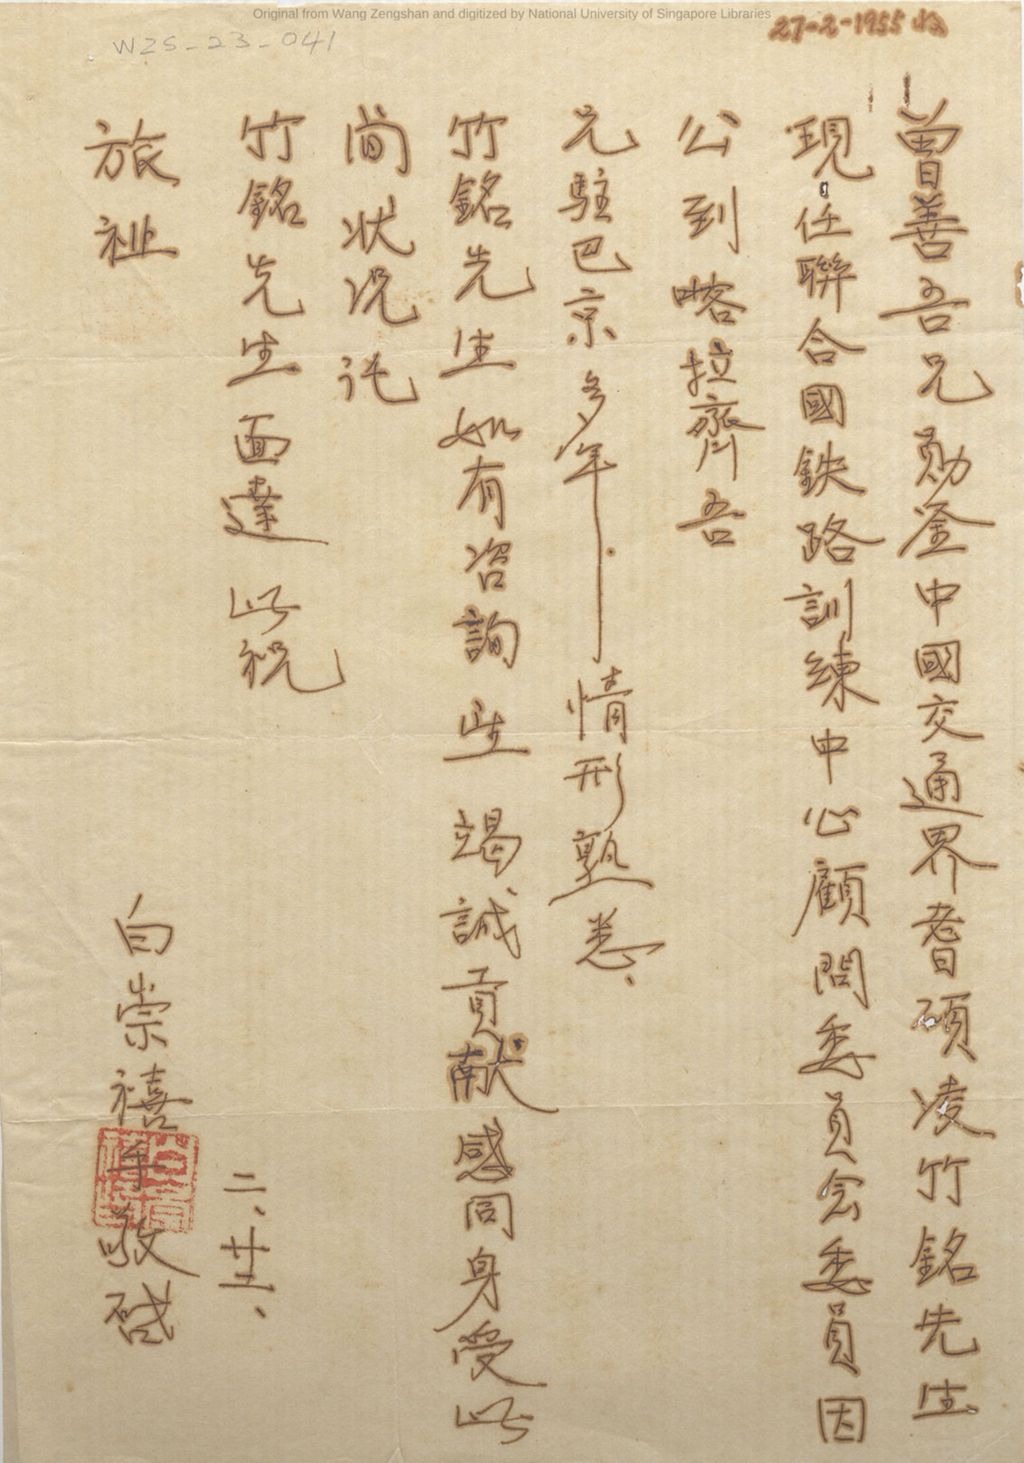 Original from Wang Zengshan and digitized by National University of Singapore Libraries
WZS-23-041
27-2-1955 收
曾善吾兄勛鉴中國交通界耆碩凌竹銘先生
現任聯合國鉄路訓練中心顧問委員会委員因
公到喀拉齊吾
兄駐巴京多年情形熟悉、
竹銘先生如有咨詢些竭誠貢献感同身受此
間状况託
竹銘先生面達此祝
旅祉
白崇禧手敬啓
二、廿二、